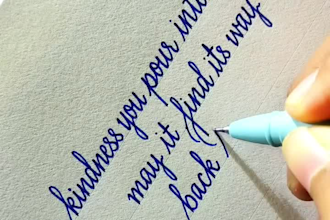 kindness you pour into
may it find its way
back